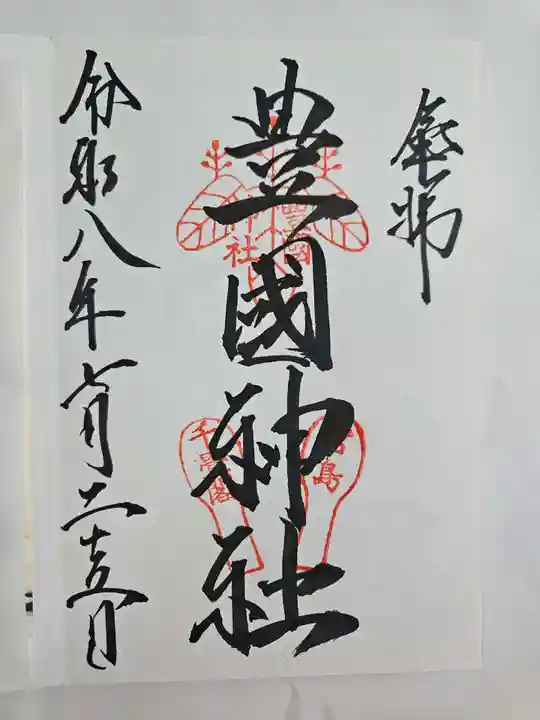 奉拝
豊國神社
豊國
神社
厳島
千畳閣
令和八年七月二十五日